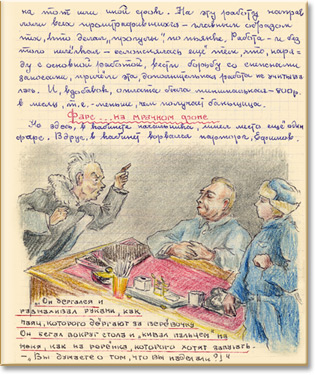 на тот или иной срок. На эту работу направ
ляли всех проштрафившихся - главным образом
тех, кто делал „прогулы" по пьянке. Работа - и без
того нелёгкая - осложнялась ещё тем, что, наря-
ду с основной работой, вести борьбу со снежными
заносами, причём эта дополнительная работа не учитыва
лась. И, вдобавок, оплата была минимальная - 800р.
в месяц, т.е. - меньше, чем получай больница.
Фарс... на мрачном фоне
Но здесь, в кабинете начальника, имел место ещё один
фарс. Вдруг, в кабинет ворвался парторг, Ефимов.
„Он дергался и
размахивал руками, как
паяц, которого дёргают за верёвочку.
Он бегал вокруг стола и „кивал пальцем" на
меня, как на ребёнка, которого хотят запугать.
- „Вы думаете о том, что вы наделали?!"